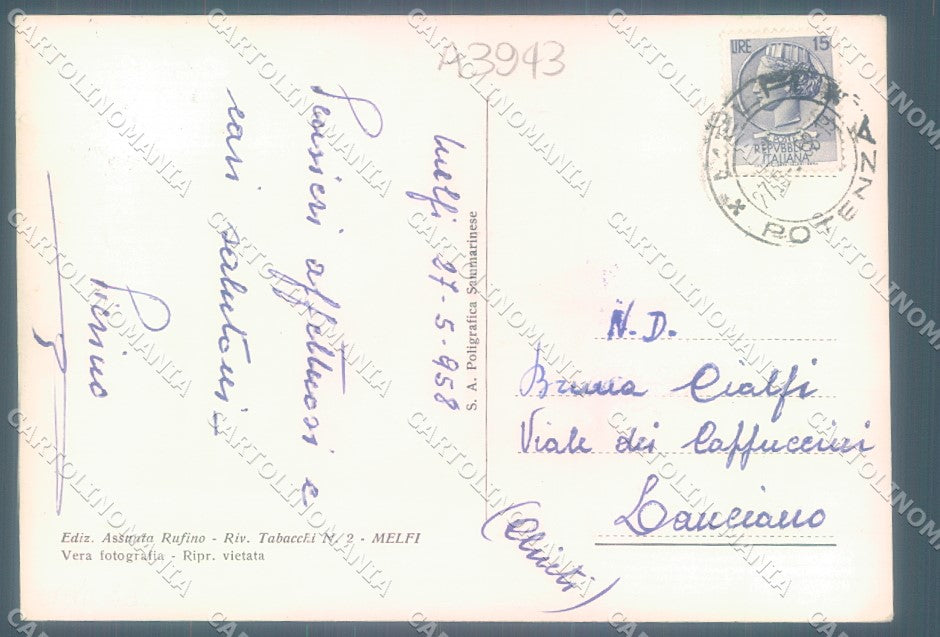 A3943
Melfi 27-5-958
Pensieri affettuosi e
cari salutoni
Pierino
S. A. Poligrafica Sammarinese
LIRE 15
REPVBBLICA
ITALIANA
POTENZA
N.D.
Bruna Cialfi
Viale dei Cappuccini
Lanciano
(Chieti)
Ediz. Assunta Rufino - Riv. Tabacchi N. 2 - MELFI
Vera fotografia - Ripr. vietata
CARTOLINOMANIA